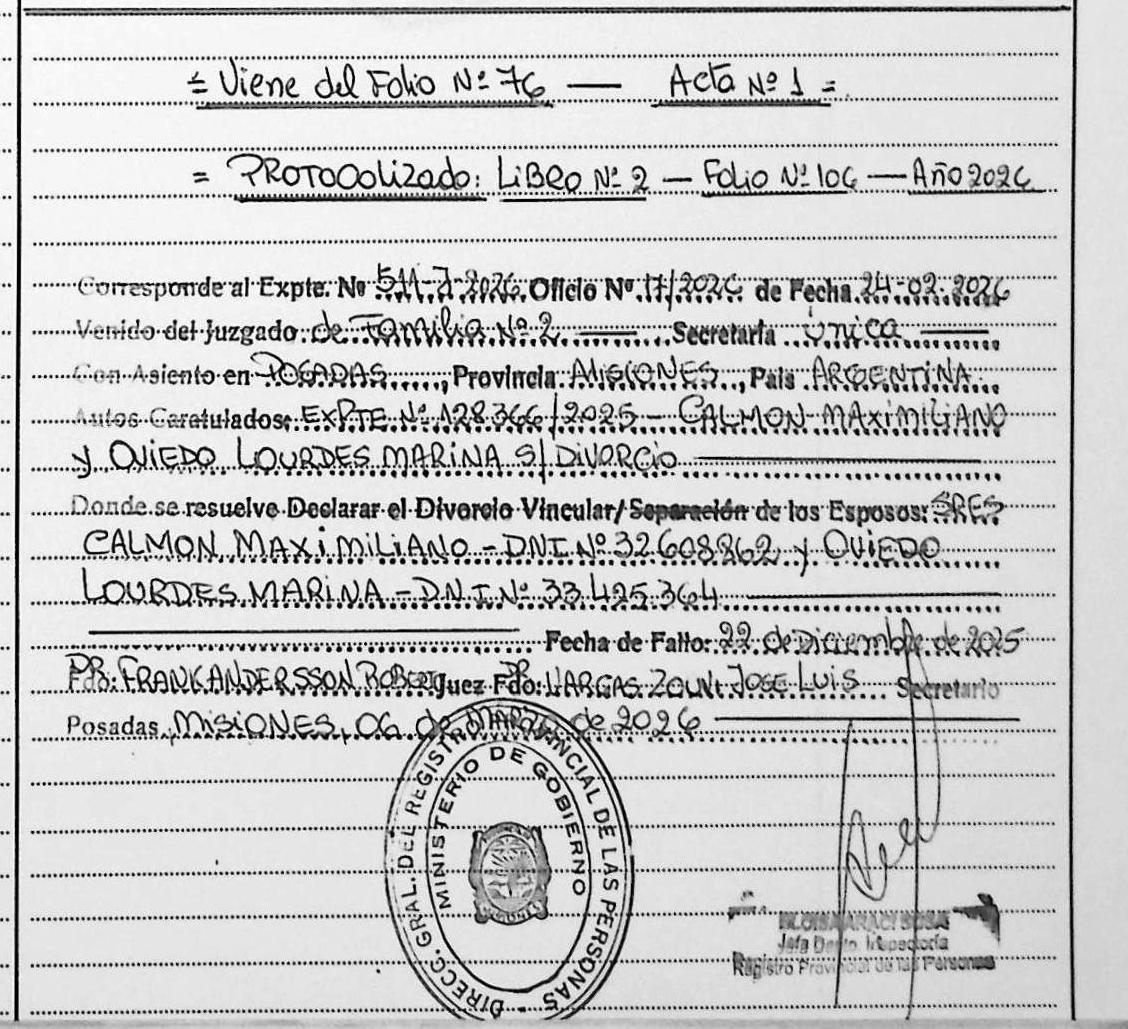 = Viene del Folio Nº 76 — Acta Nº 1 =
= PROTOCOLIZADO: LIBRO Nº 2 — Folio Nº 106 — Año 2026
Corresponde al Expte. Nº 511-J-2026 Oficio Nº 17/2026 de Fecha 24-02-2026
Venido del Juzgado de Familia Nº 2 — Secretaría Única —
Con Asiento en POSADAS, Provincia MISIONES, País ARGENTINA
Autos Caratulados: EXPTE Nº 128366/2025 - CALMON MAXIMILIANO
y OVIEDO LOURDES MARINA S/ DIVORCIO —
Donde se resuelve Declarar el Divorcio Vincular/Separación de los Esposos: SRES
CALMON MAXIMILIANO - DNI Nº 32.608.862 y OVIEDO
LOURDES MARINA - D.N.I. Nº 33.425.364 —
— Fecha de Fallo: 22 de Diciembre de 2025
Fdo: DR. FRANK ANDERSSON ROBERT Juez Fdo: DR. VARGAS JOSE LUIS Secretario
Posadas, Misiones, 06 de MARZO de 2026 —
DIRECC. GRAL. DEL REGISTRO PROVINCIAL DE LAS PERSONAS -
MINISTERIO DE GOBIERNO
MISIONES
ARACI SOSA
Jefa Dpto. Inspectoría
Registro Provincial de las Personas